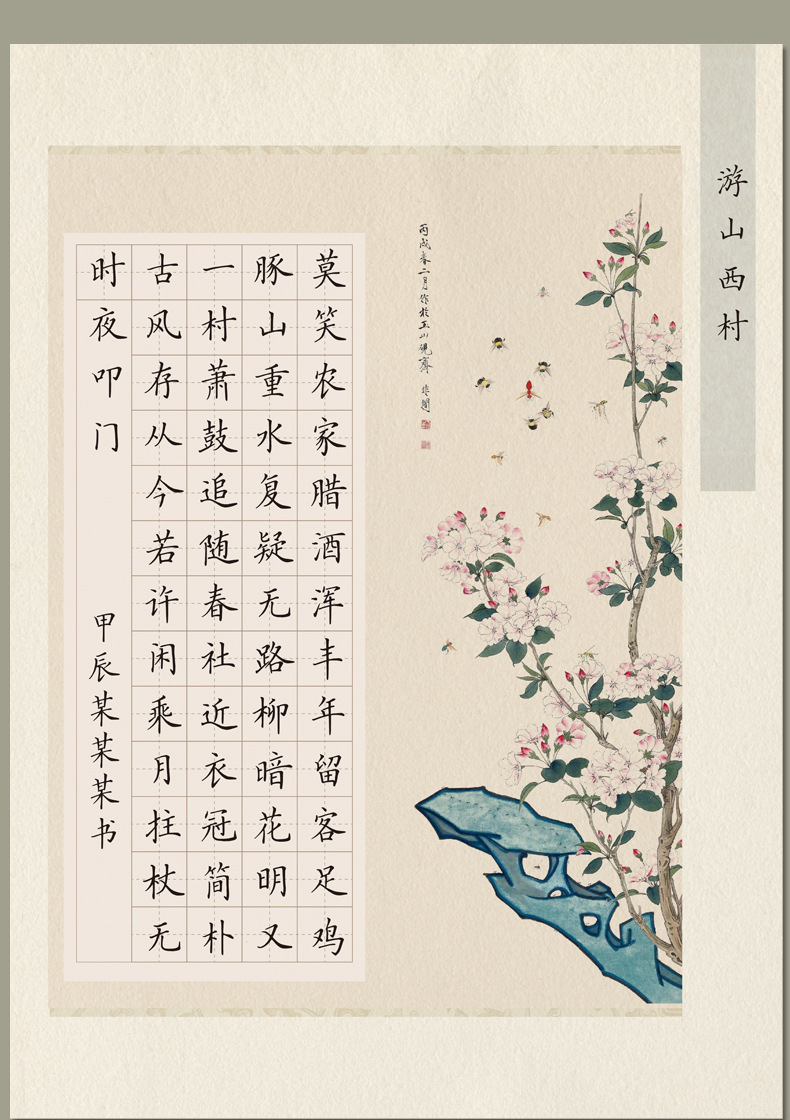 游山西村
丙戌春二月作于玉山砚斋 非闇
莫笑农家腊酒浑丰年留客足鸡
豚山重水复疑无路柳暗花明又
一村萧鼓追随春社近衣冠简朴
古风存从今若许闲乘月拄杖无
时夜叩门
甲辰某某某书